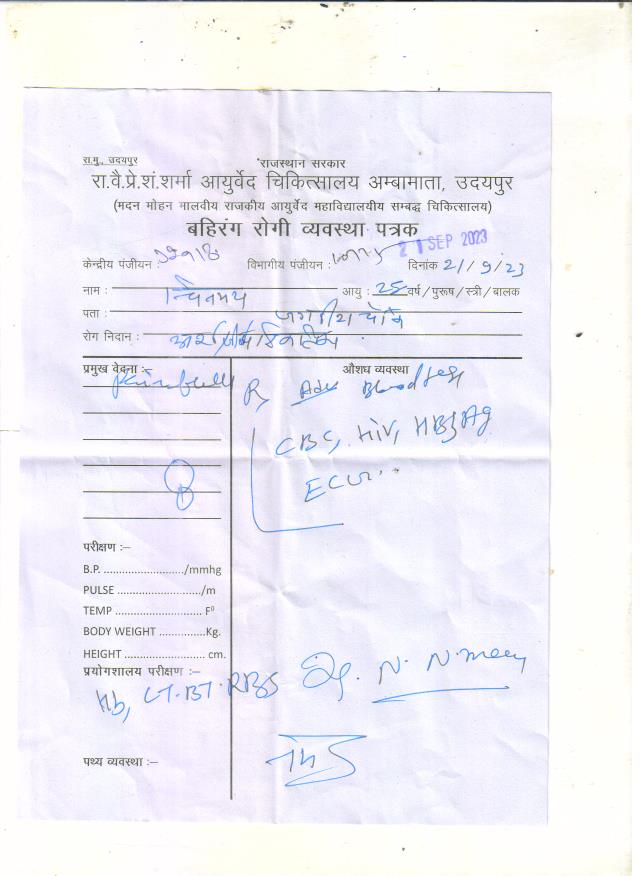 रा.मु., उदयपुर
राजस्थान सरकार
रा.वै.प्रे.शं.शर्मा आयुर्वेद चिकित्सालय अम्बामाता, उदयपुर
(मदन मोहन मालवीय राजकीय आयुर्वेद महाविद्यालयीय सम्बद्ध चिकित्सालय)
बहिरंग रोगी व्यवस्था पत्रक
21 SEP 2023
केन्द्रीय पंजीयन : विभागीय पंजीयन : दिनांक 21/9/23
नाम : चिन्मय आयु : 25 वर्ष/पुरूष/स्त्री/बालक
पता : चौक
रोग निदान :
प्रमुख वेदना :- औशघ व्यवस्था
Adv Blood test
CBC, HIV, HBsAg
परीक्षण :-
B.P. ........................./mmhg
PULSE ........................../m
TEMP .......................... F⁰
BODY WEIGHT ..............Kg.
HEIGHT ....................... cm.
प्रयोगशालय परीक्षण :-
Hb, CT-BT-RBS N. N.
पथ्य व्यवस्था :-